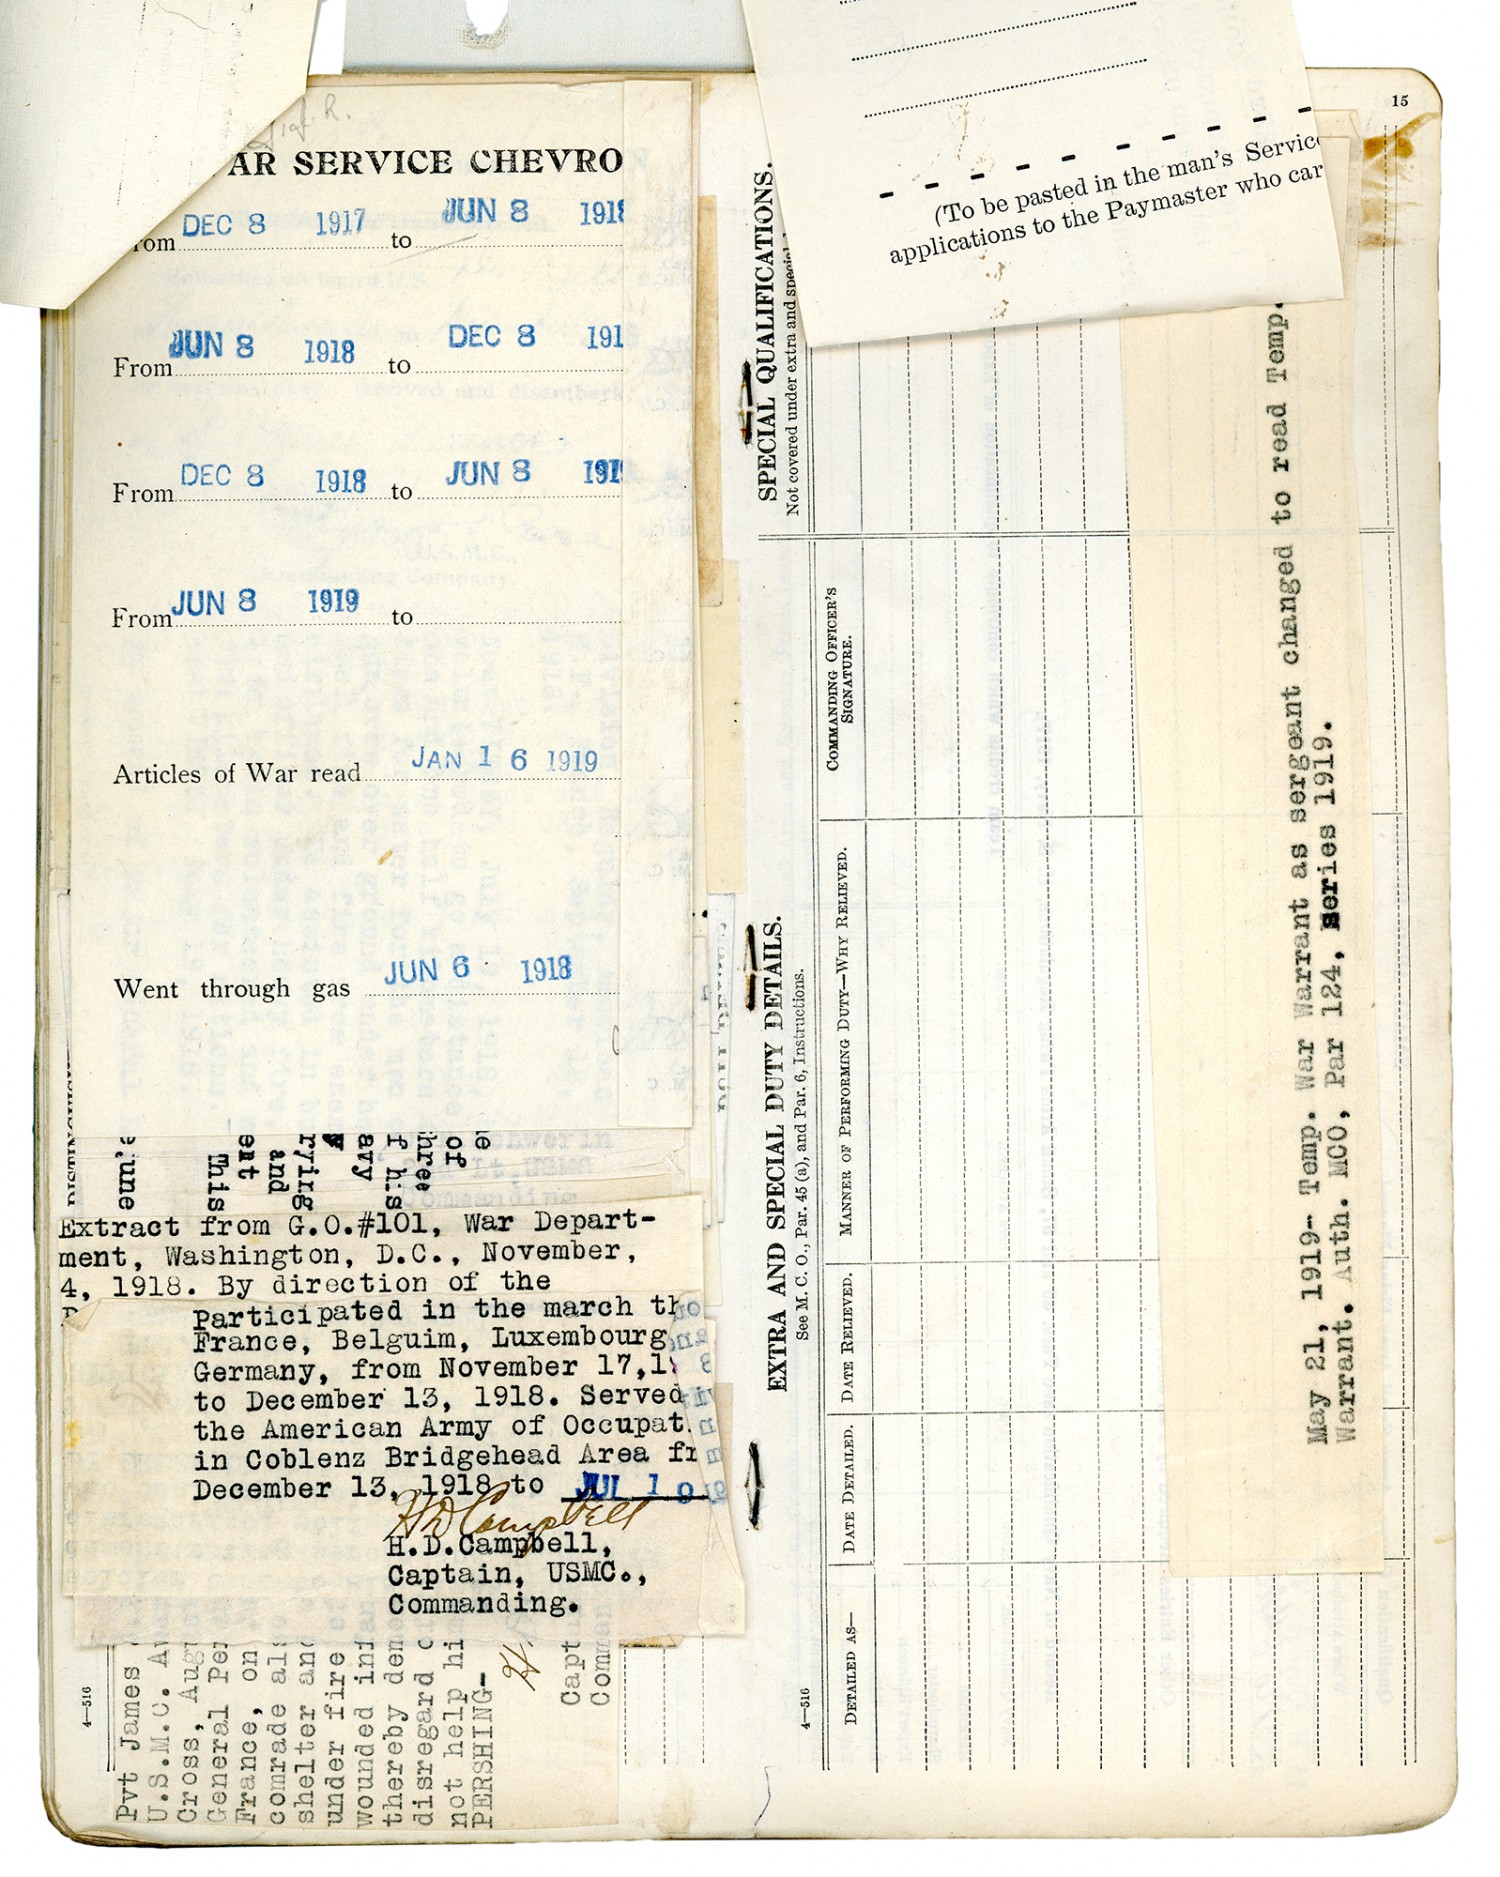 AR SERVICE CHEVRO
om DEC 8 1917 to JUN 8 191
From JUN 8 1918 to DEC 8 191
From DEC 8 1918 to JUN 8 191
From JUN 8 1919 to
Articles of War read JAN 16 1919
Went through gas JUN 6 1918
Extract from G.O.#101, War Depart-
ment, Washington, D.C., November,
4, 1918. By direction of the
Participated in the march th
France, Belguim, Luxembourg,
Germany, from November 17,1
to December 13, 1918. Served
the American Army of Occupat
in Coblenz Bridgehead Area fr
December 13, 1918 to JUL 1
H D Campbell
H.D.Campbell,
Captain, USMC.,
Commanding.
Pvt James
U.S.M.C.
Cross, Aug
General Per
France, on
comrade als
shelter and
under fire
wounded
thereby
disregard
not help hi
PERSHING-
Capt
Comma
une
This
ent
and
rying
avy
f his
hree
of
4—516
15
(To be pasted in the man's Servic
applications to the Paymaster who car
SPECIAL QUALIFICATIONS.
Not covered under extra and special
EXTRA AND SPECIAL DUTY DETAILS.
See M. C. O., Par. 45 (a), and Par. 6, Instructions.
DETAILED AS—
DATE DETAILED.
DATE RELIEVED.
MANNER OF PERFORMING DUTY—WHY RELIEVED.
COMMANDING OFFICER'S
SIGNATURE.
4—516
May 21, 1919- Temp. War Warrant as sergeant changed to read Temp.
Warrant. Auth. MCO, Par 124, series 1919.